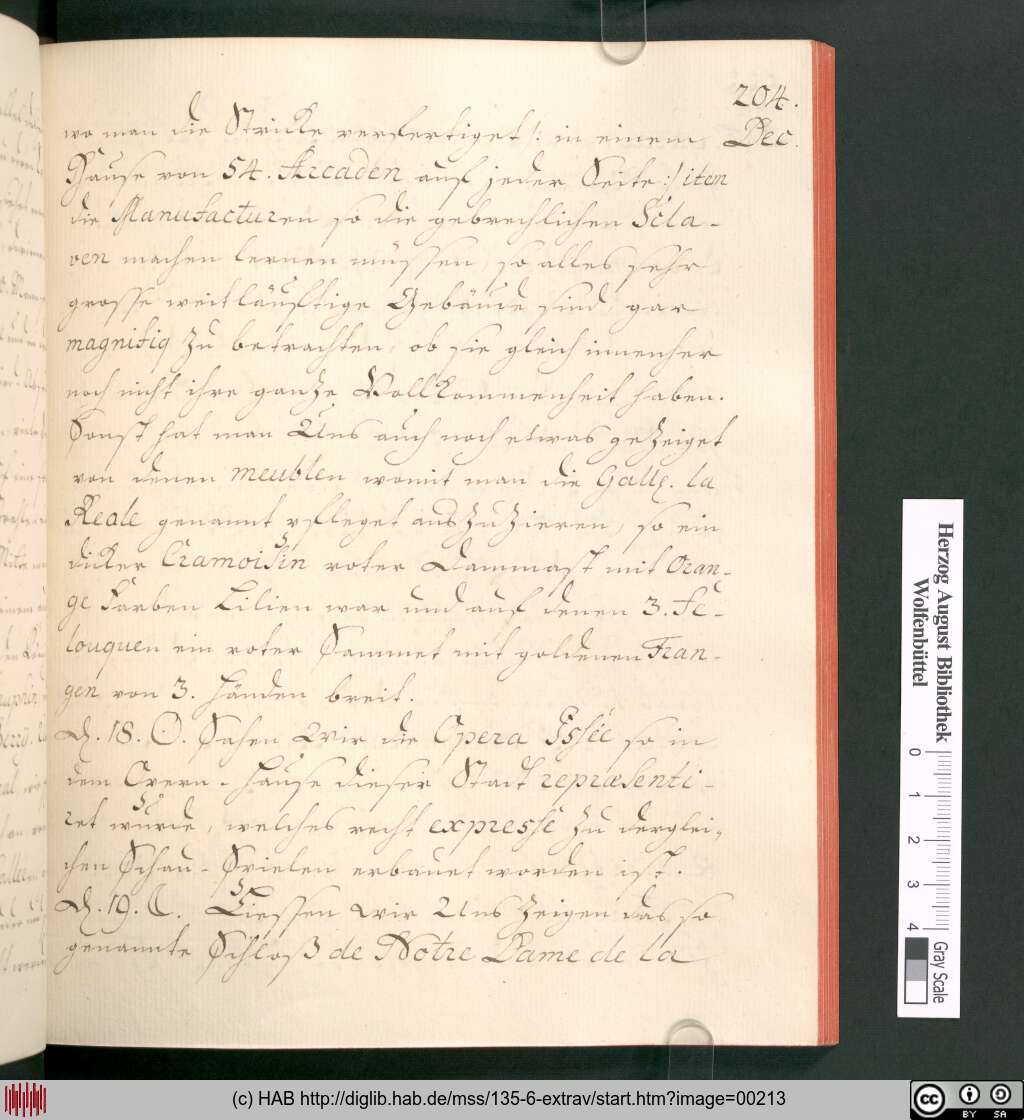 204.
wo man die Stricke verfertiget /: in einem Dec.
Hause von 54. Arcaden auf jeder Seite :/ iten
die Manufacturen so die gebrechlichen Scla-
ven machen lernen müssen, so alles sehr
grosse weitläuftige Gebäude sind, gar
magnifiq zu betrachten, ob sie gleich innenher
noch nicht ihre gantze Vollkommenheit haben.
Sonst hat man Uns auch noch etwas gezeiget
von denen meublen womit man die Galle. la
Reale genannt pfleget auszuzieren, so ein
dicker Cramoisin roter Dammast mit Oran-
ge Farben Lilien war und auf denen 3. Fe-
louquen ein roter Sammet mit goldenen Fran-
gen von 3. Händen breit.
D. 18. ☉. Sahen Wir die Opera Issée so in
dem Opern-Hause dieser Stadt repræsenti-
ret wurde, welches recht expresse zu derglei-
chen Schau-Spielen erbauet worden ist.
D. 19. ☾. Liessen Wir Uns zeigen das so
genannte Schloß de Notre Dame de la
Herzog August Bibliothek
Wolfenbüttel
0 1 2 3 4
Gray Scale
(c) HAB http://diglib.hab.de/mss/135-6-extrav/start.htm?image=00213
cc BY SA